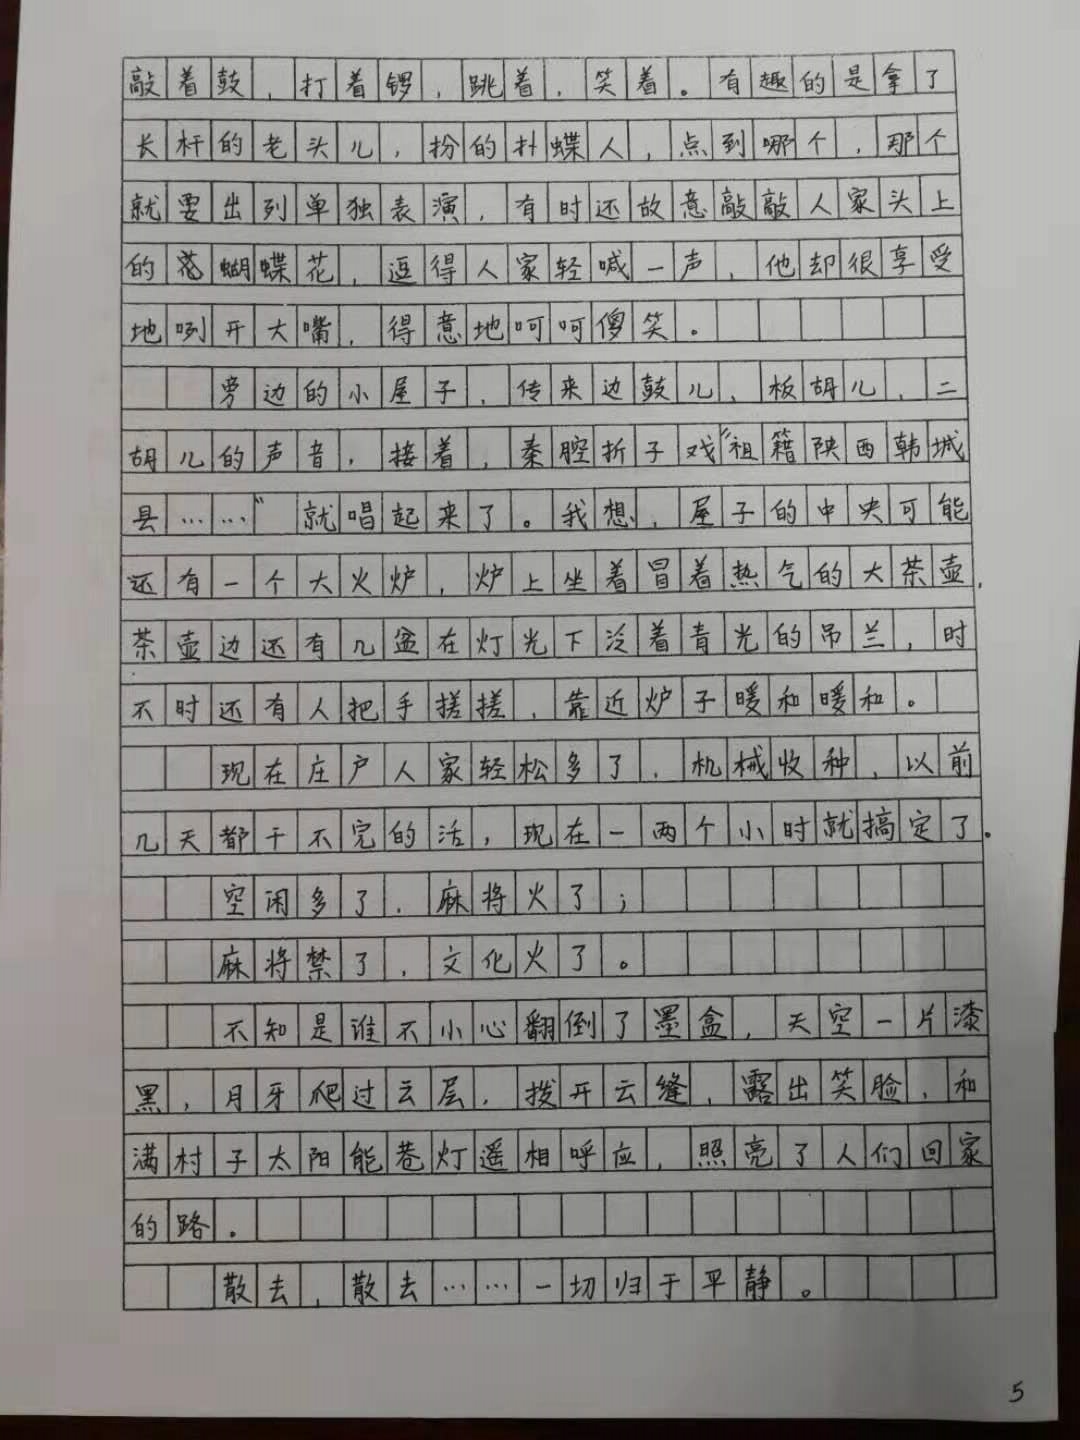 敲着鼓,打着锣,跳着,笑着。有趣的是拿了
长杆的老头儿,扮的扑蝶人,点到哪个,那个
就要出列单独表演,有时还故意敲敲人家头上
的花蝴蝶花,逗得人家轻喊一声,他却很享受
地咧开大嘴,得意地呵呵傻笑。
旁边的小屋子,传来边鼓儿、板胡儿、二
胡儿的声音,接着,秦腔折子戏“祖籍陕西韩城
县……”就唱起来了。我想,屋子的中央可能
还有一个大火炉,炉上坐着冒着热气的大茶壶,
茶壶边还有几盆在灯光下泛着青光的吊兰,时
不时还有人把手搓搓,靠近炉子暖和暖和。
现在庄户人家轻松多了,机械收种,以前
几天都干不完的活,现在一两个小时就搞定了。
空闲多了,麻将火了;
麻将禁了,文化火了。
不知是谁不小心翻倒了墨盒,天空一片漆
黑,月牙爬过云层,拨开云缝,露出笑脸,和
满村子太阳能巷灯遥相呼应,照亮了人们回家
的路。
散去,散去……一切归于平静。
5